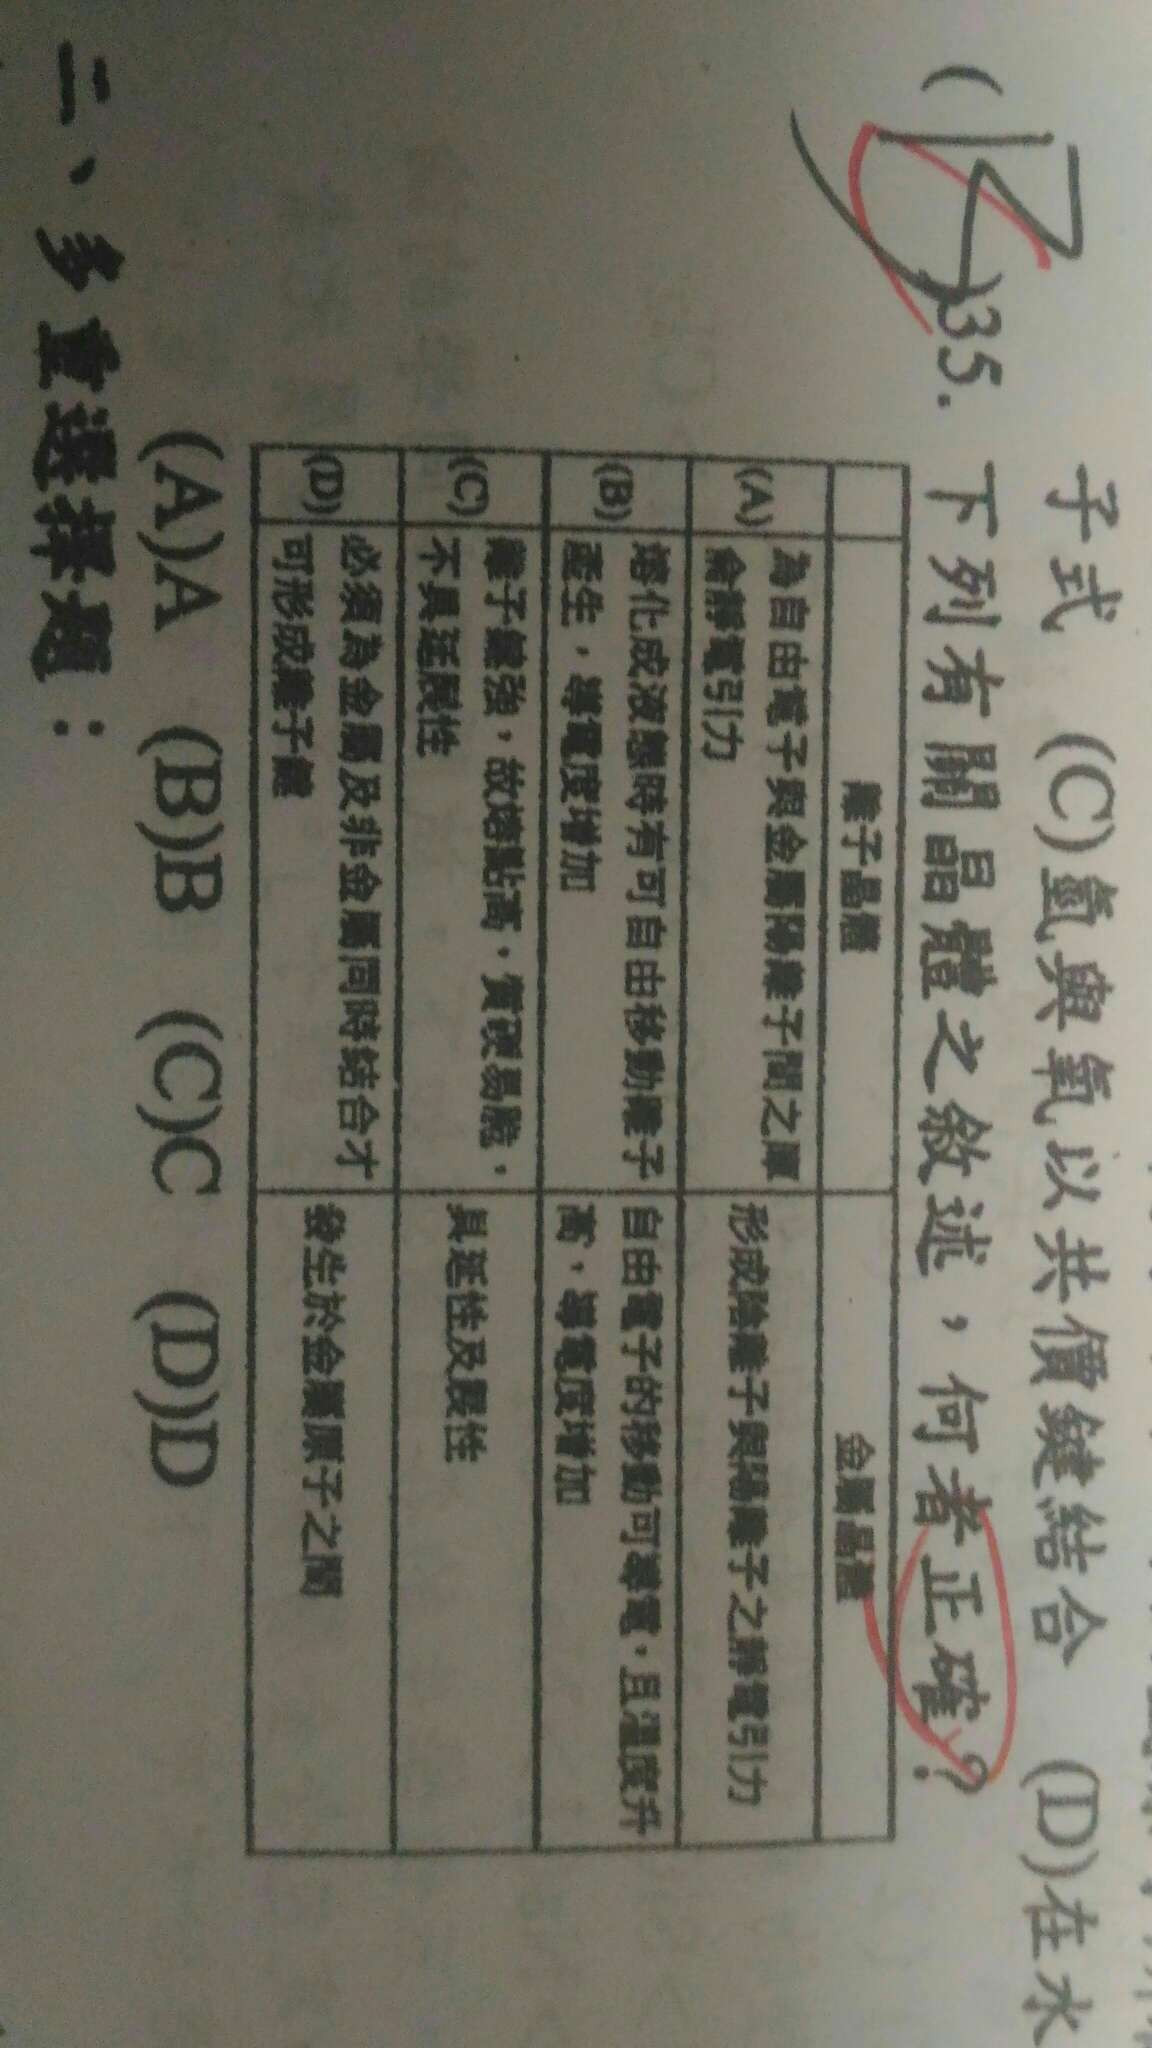 子式 (C)氫與氧以共價鍵結合 (D)在水
( D )35. 下列有關晶體之敘述，何者正確？
離子晶體 金屬晶體
(A) 為自由電子與金屬陽離子間之庫 形成陰離子與陽離子之靜電引力
侖靜電引力
(B) 熔化成液態時有可自由移動離子 自由電子的移動可導電，且溫度升
產生，導電度增加 高，導電度增加
(C) 離子鍵強，故熔點高，質硬易脆， 具延性及展性
不具延展性
(D) 必須為金屬及非金屬同時結合才 發生於金屬原子之間
可形成離子鍵
(A)A (B)B (C)C (D)D
二、多重選擇題：